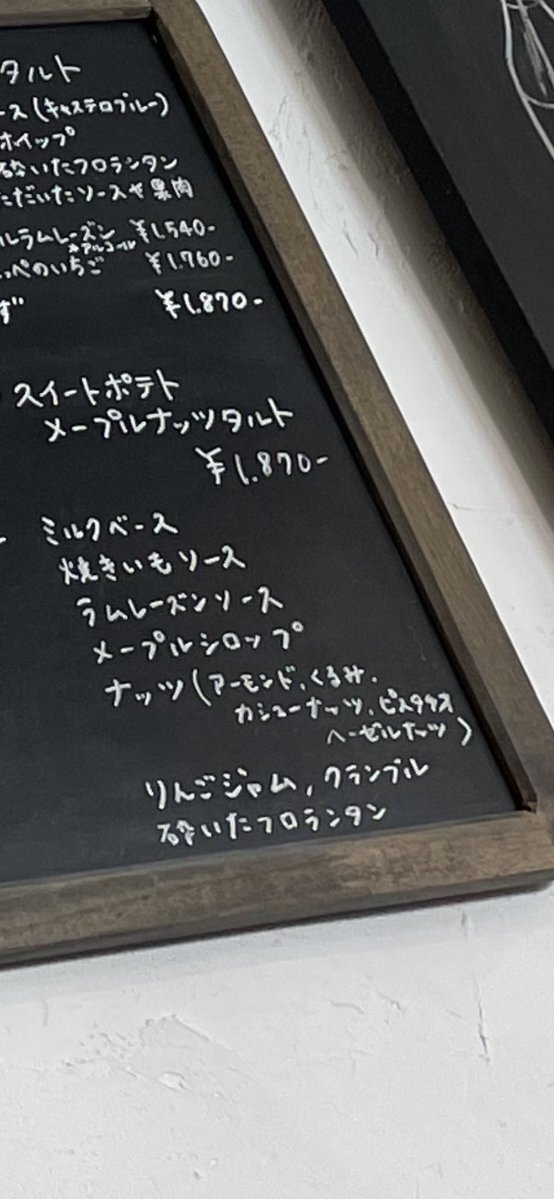 タルト
ース(キャステロブルー)
ホイップ
砕いたフロランタン
ただいたソースや果肉
ルラムレーズン ¥1.540-
※アルコール
っぺのいちご ¥1.760-
ず ¥1.870-
スイートポテト
メープルナッツタルト
¥1.870-
ミルクベース
焼きいもソース
ラムレーズンソース
メープルシロップ
ナッツ(アーモンド、くるみ、
カシューナッツ、ピスタチオ
ヘーゼルナッツ)
りんごジャム、クランブル
砕いたフロランタン